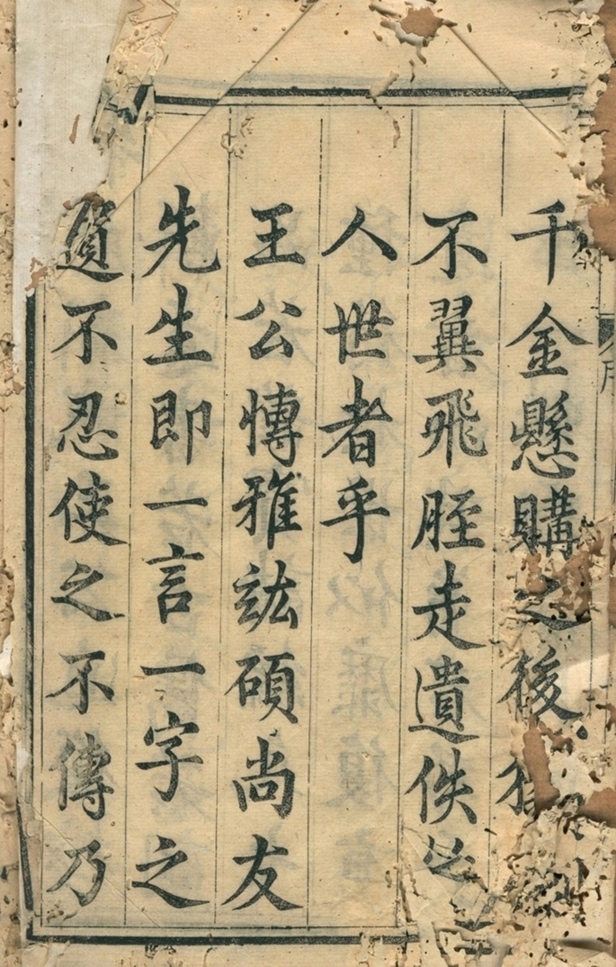 千金懸購之後
不翼飛脛走遺佚
人世者乎
王公愽雅竑碩尚友
先生即一言一字之
遺不忍使之不傳乃